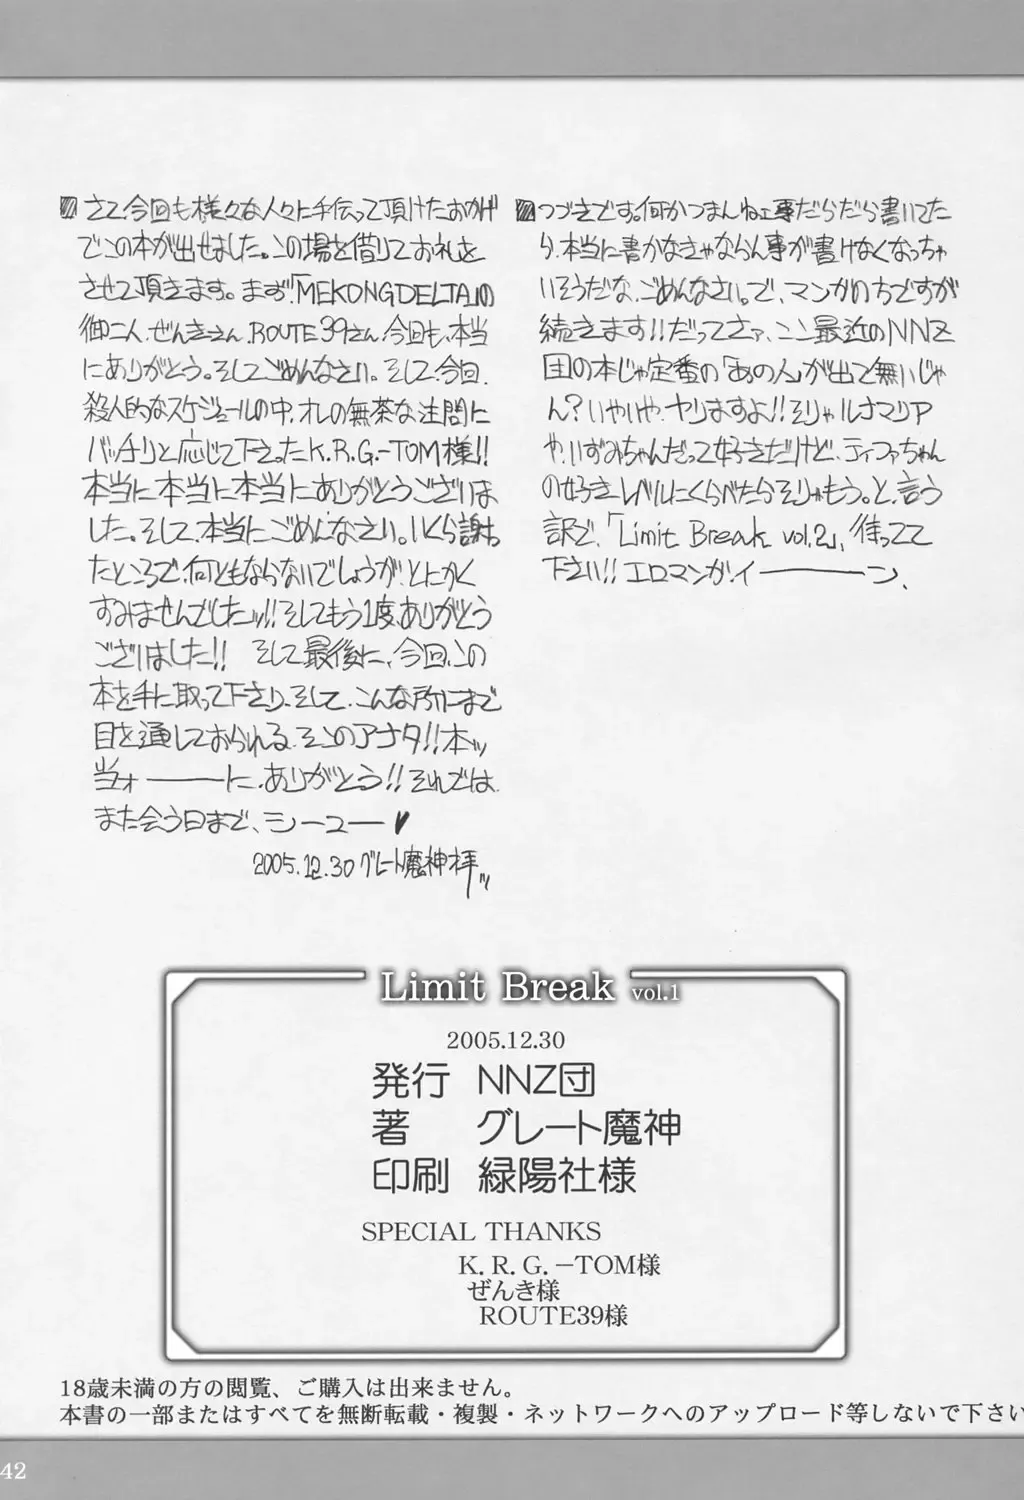 つづきです。何かつまんねェ事だらだら書いてた
ら、本当に書かなきゃならん事が書けなくなっちゃ
いそうだな、ごめんなさい。で、マンガのちですが
続きます!!だってさァ、ここ最近のNNZ
団の本じゃ定番の「あの人」が出て無いじゃ
ん?いやいや、ヤりますよ!!そりゃルナマリア
や、いずみちゃんだって好きだけど、ティファちゃん
の好きレベルにくらべたらそりゃもう。と、言う
訳で、「Limit Break vol.2」、待ってて
下さい!!エロマンガ、イーーーン、
さて、今回も様々な人々に手伝って頂けたおかげ
でこの本が出せました。この場を借りてお礼を
させて頂きます。まず、「MEKONG DELTA」の
御二人、ぜんきさん、ROUTE39さん、今回も、本当
にありがとう。そしてごめんなさい。そして、今回、
殺人的なスケジュールの中、オレの無茶な注問に
バッチリと応じて下さったK.R.G.-TOM様!!
本当に本当に本当にありがとうございま
した。そして、本当にごめんなさい。いくら謝っ
たところで、何ともならないでしょうが、とにかく
すみませんでしたッ!!そしてもう1度、ありがとう
ございました!! そして最後に、今回、この
本を手に取って下さり、そして、こんな所にまで
目を通しておられる、そこのアナタ!!本ッ
当ォーーーに、ありがとう!!それでは、
また会う日まで、シーユー♥
2005.12.30 グレート魔神拝ッ
Limit Break vol.1
2005.12.30
発行 NNZ団
著 グレート魔神
印刷 緑陽社様
SPECIAL THANKS
K.R.G.-TOM様
ぜんき様
ROUTE39様
18歳未満の方の閲覧、ご購入は出来ません。
本書の一部またはすべてを無断転載・複製・ネットワークへのアップロード等しないで下さい
42